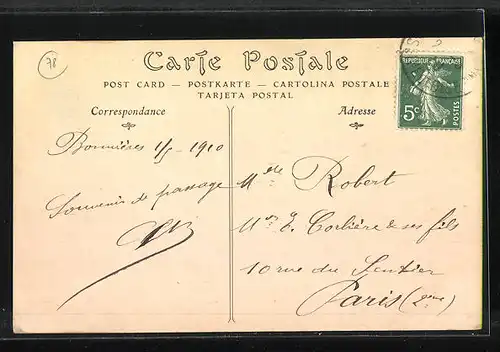 78
Carte Postale
POST CARD — POSTKARTE — CARTOLINA POSTALE
TARJETA POSTAL
Correspondance
Adresse
REPUBLIQUE FRANÇAISE
5c
POSTES
Bonnières 1/5 1910
Souvenir de passage
Mlle Robert
Mrs E. Corlière & ses fils
10 rue du Sentier
Paris (2ème)